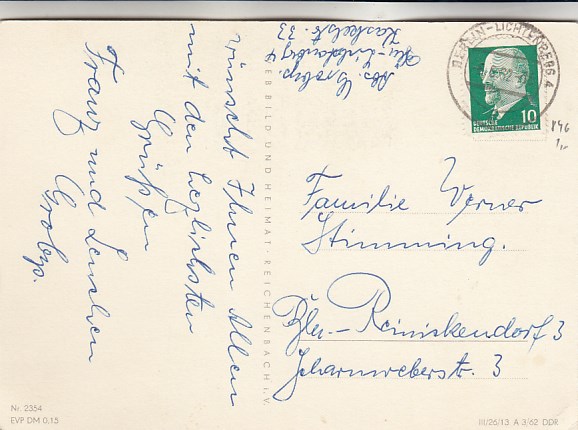 Abs. Grobys.
Bln.-Lichtenberg 4
Kaskelstr. 33
wünscht Ihnen Allen
mit den herzlichsten
Grüßen
Franz und Lenchen
Grobys.
VEB BILD UND HEIMAT · REICHENBACH i. V.
BERLIN-LICHTENBERG 4
10
DEUTSCHE
DEMOKRATISCHE REPUBLIK
846
1,-
Familie Werner
Stimming.
Bln.-Reinickendorf 3
Scharnweberstr. 3
Nr. 2354
EVP DM 0,15
III/26/13 A 3/62 DDR